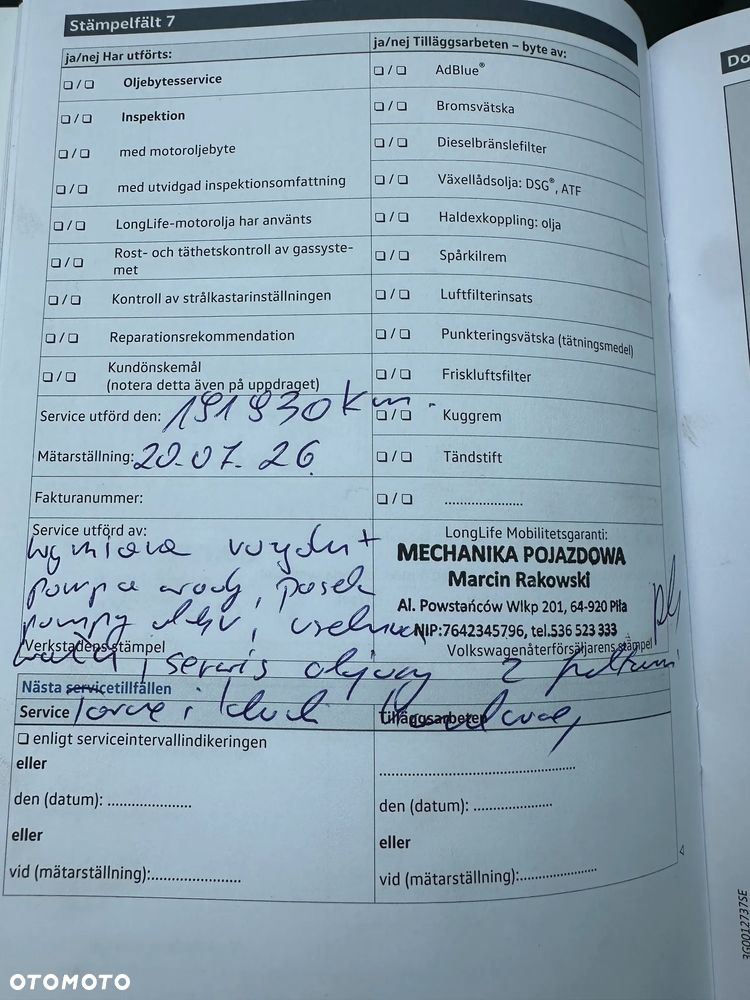 Stämpelfält 7
ja/nej Har utförts:
ja/nej Tilläggsarbeten – byte av:
❏ / ❏ Oljebytesservice
❏ / ❏ AdBlue®
❏ / ❏ Inspektion
❏ / ❏ Bromsvätska
❏ / ❏ med motoroljebyte
❏ / ❏ Dieselbränslefilter
❏ / ❏ med utvidgad inspektionsomfattning
❏ / ❏ Växellådsolja: DSG®, ATF
❏ / ❏ LongLife-motorolja har använts
❏ / ❏ Haldexkoppling: olja
❏ / ❏ Rost- och täthetskontroll av gassyste-
met
❏ / ❏ Spårkilrem
❏ / ❏ Kontroll av strålkastarinställningen
❏ / ❏ Luftfilterinsats
❏ / ❏ Reparationsrekommendation
❏ / ❏ Punkteringsvätska (tätningsmedel)
❏ / ❏ Kundönskemål
(notera detta även på uppdraget)
❏ / ❏ Friskluftsfilter
Service utförd den: 191930 km.
❏ / ❏ Kuggrem
Mätarställning: 20.07.26
❏ / ❏ Tändstift
Fakturanummer:
❏ / ❏ ......................
Service utförd av:
LongLife Mobilitetsgaranti:
wymiana rozrządu +
pompa wody, pasek
pompy
MECHANIKA POJAZDOWA
Marcin Rakowski
Al. Powstańców Wlkp 201, 64-920 Piła
NIP:7642345796, tel.536 523 333
Verkstadens stämpel
Volkswagenåterförsäljarens stämpel
serwis olejowy z
Nästa servicetillfällen
Service
Tilläggsarbeten
❏ enligt serviceintervallindikeringen
eller
den (datum): ......................
den (datum): ......................
eller
eller
vid (mätarställning):......................
vid (mätarställning):......................
3G0012737SE
Do
OTOMOTO